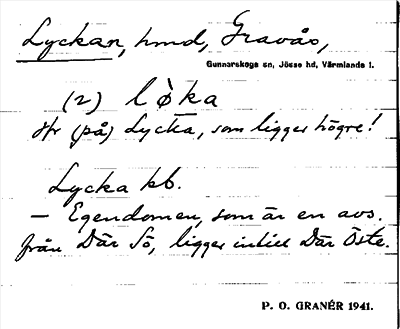 Lyckan, hmd, Gravås,
Gunnarskogs sn, Jösse hd, Värmlands l.
(2) lo̊ka
Hr (på) Lycka, som ligger högre!
Lycka kb.
— Egendomen, som är en avs.
från Där Sö, ligger intill Där Öste.
P. O. GRANÉR 1941.